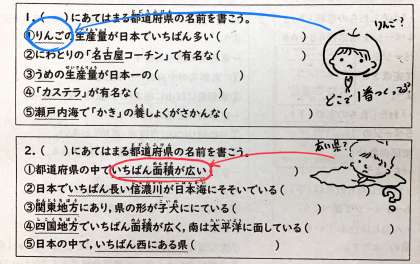 1. ( )にあてはまる都道府県の名前を書こう。
①りんごの生産量が日本でいちばん多い( )
②にわとりの「名古屋コーチン」で有名な( )
③うめの生産量が日本一の( )
④「カステラ」が有名な( )
⑤瀬戸内海で「かき」の養しょくがさかんな( )
りんご?
どこで1番つくってる?
2. ( )にあてはまる都道府県の名前を書こう。
①都道府県の中でいちばん面積が広い( )
②日本でいちばん長い信濃川が日本海にそそいている( )
③関東地方にあり,県の形が子犬ににている( )
④四国地方でいちばん面積が広く,南は太平洋に面している( )
⑤日本の中で,いちばん西にある県( )